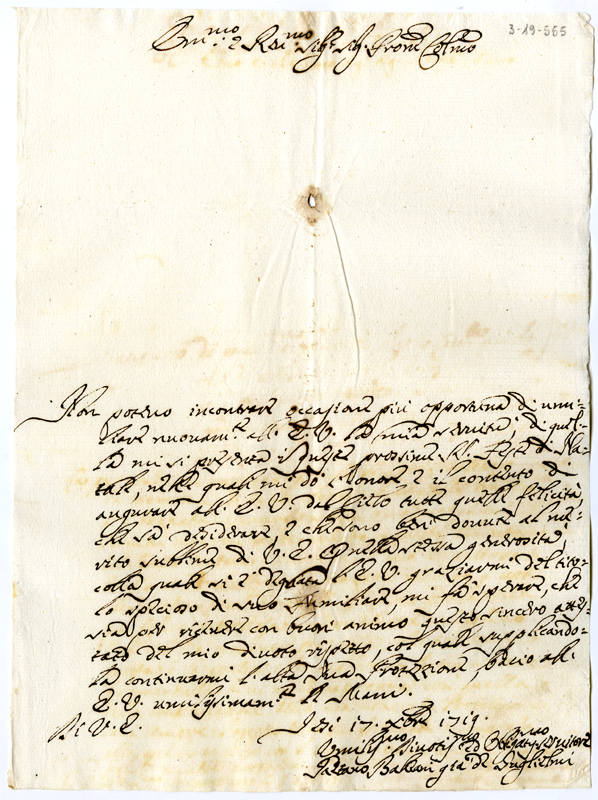 3-19-565
Em.mo e Rev.mo Sig.r Sig.r Prone Col.mo
Non potevo incontrare occasione più opportuna di umi=
liare nuovam.te all' E. V. la mia servitù, di quel=
la mi si presenta in queste prossime SS. Feste di Na=
tale, nelle quali mi dò l'onore, e il contento di
augurare all' E. V. dal Cielo tutte quelle felicità,
che sà desiderare, e che sono ben dovute al me=
rito sublime di V. E. Quella stessa generosità,
colla quale si è degnata l' E. V. graziarmi del tito=
lo specioso di suo familiare, mi fà sperare, che
sia per ricevere con buon animo questo sincero attes=
tato del mio divoto rispetto, col quale supplicando=
la continuarmi l'alta sua Protezione, bacio all'
E. V. umilissimam.te le Mani.
Di V. E.
Iesi 17. Xbre 1719.
Umiliss.mo Divotis.mo ed Obligatis.mo Servitore
Gaetano Balleani già de Guglielmi